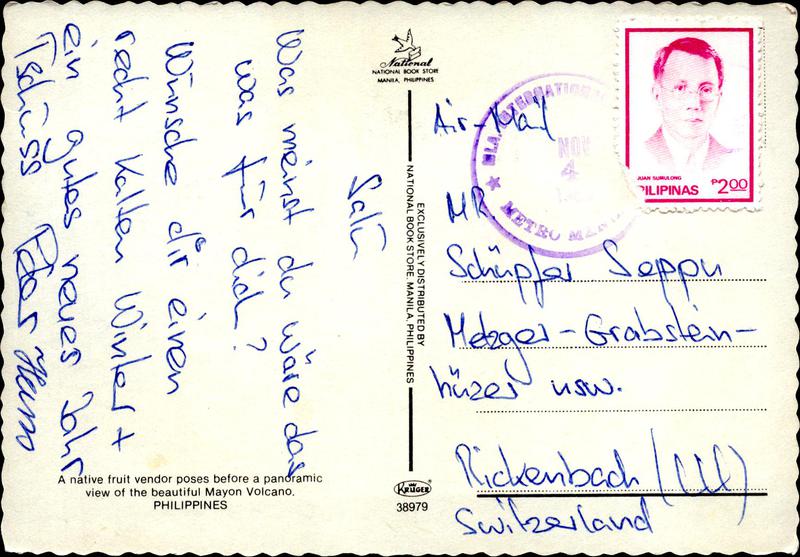 Salü
Was meinst du wäre das
was für dich?
Wünsche dir einen
recht kalten Winter +
ein gutes neues Jahr
Tschüss Peter
National
NATIONAL BOOK STORE
MANILA, PHILIPPINES
EXCLUSIVELY DISTRIBUTED BY
NATIONAL BOOK STORE, MANILA, PHILIPPINES
A native fruit vendor poses before a panoramic
view of the beautiful Mayon Volcano.
PHILIPPINES
KRÜGER
38979
JUAN SUMULONG
PILIPINAS ₱2.00
INTERNATIONAL
NOV
4
METRO
Air-Mail
MR.
Schüpfer Seppu
Metzger-Grabstein-
usw.
Rickenbach (LU)
Switzerland